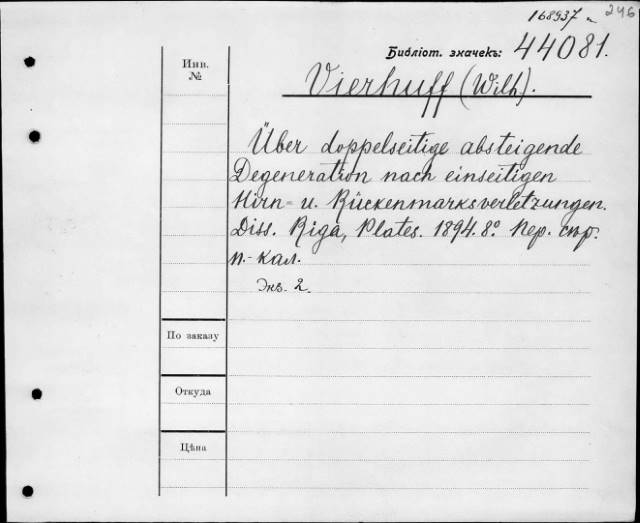 168937 a 246
Библіот. значекъ: 44081.
Инв.
№
Vierhuff (Wilh).
Über doppelseitige absteigende
Degeneration nach einseitigen
Hirn- u. Rückenmarksverletzungen.
Diss. Riga, Plates. 1894. 8º. Пер. сѣр.
п.-кал.
Экз. 2.
По заказу
Откуда
Цѣна